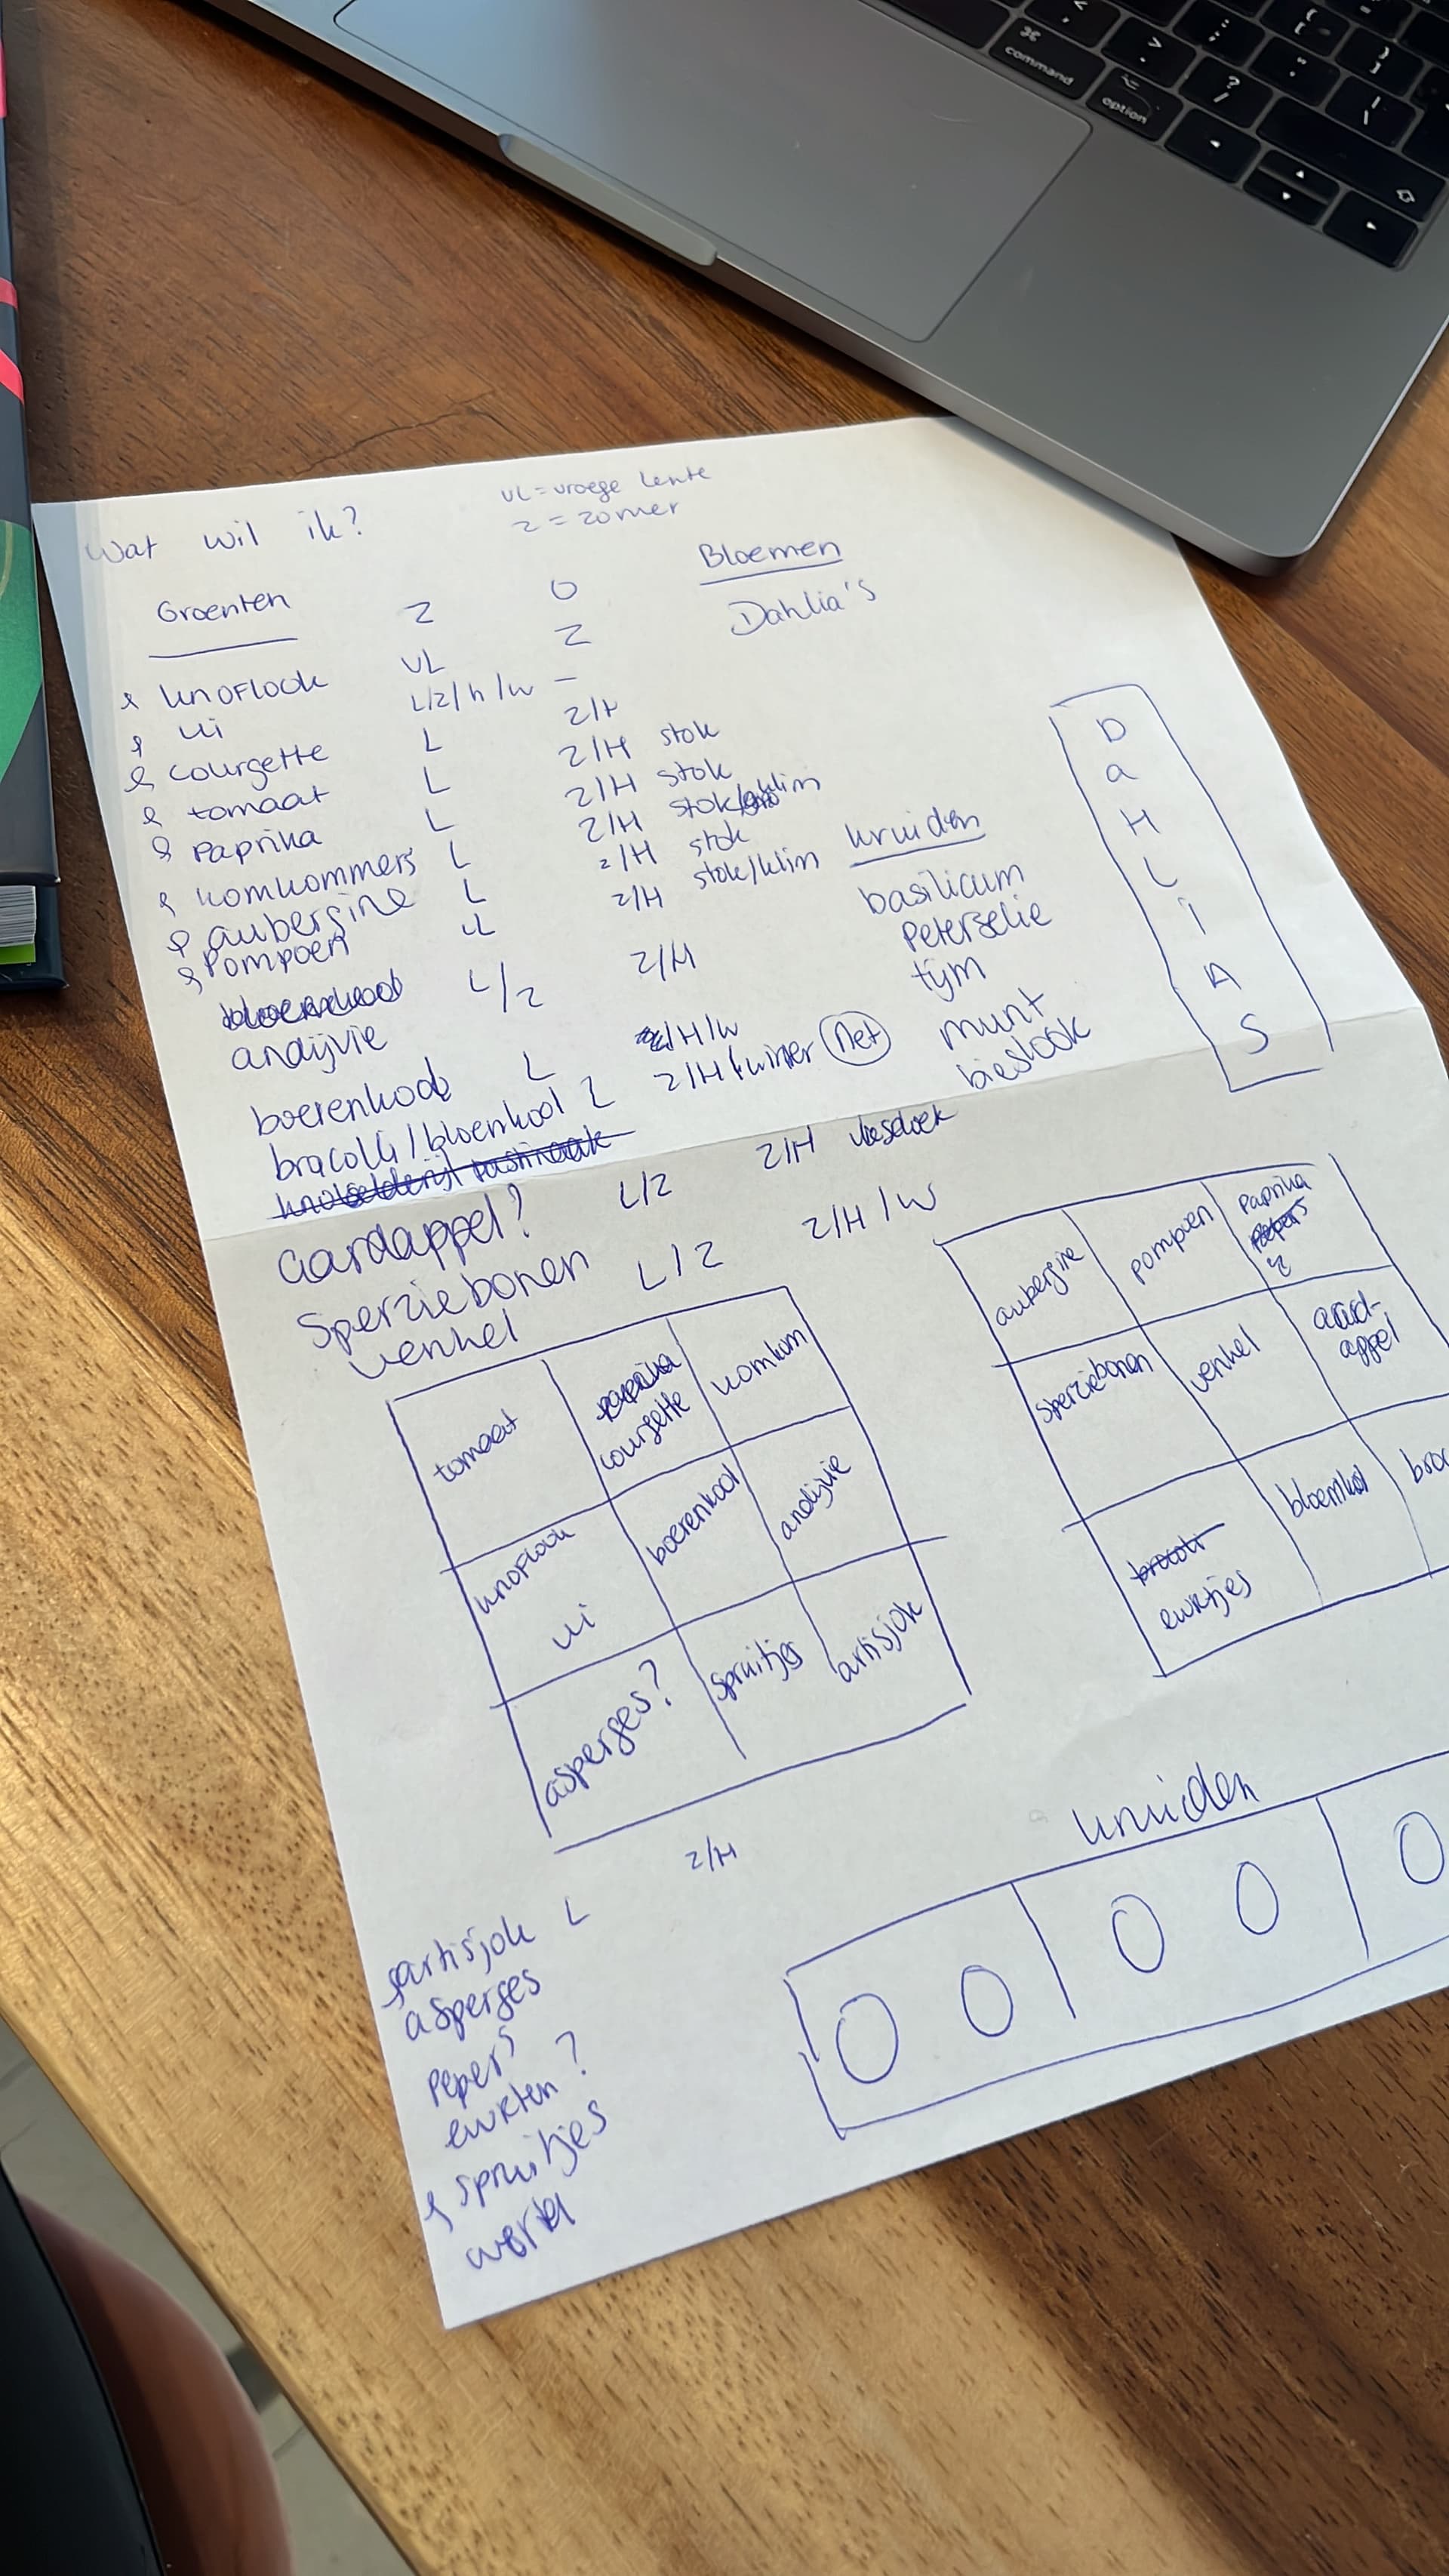 command
option
Wat wil ik?
VL = vroege lente
Z = zomer
Groenten Z O
Bloemen
Dahlia's
knoflook VL Z
ui L/Z/h/w -
courgette L Z/H
tomaat L Z/H stok
paprika L Z/H stok
komkommers L Z/H stok/klim
aubergine L Z/H stok
Pompoen VL Z/H stok/klim
andijvie L/Z Z/H
boerenkool L /H/W
bracolli/bloemkool L Z/H winter Net
knolselderij pastinaak
aardappel? L/Z Z/H vliesdoek
Sperziebonen L/Z Z/H/W
venkel
kruiden
basilicum
Peterselie
tijm
munt
bieslook
D
a
H
L
i
A
S
tomaat paprika courgette komkom
knoflook ui boerenkool andijvie
asperges? spruitjes artisjok
aubergine pompoen paprika pepers
sperziebonen venkel aard-
appel
brocoli erwtjes bloemkol
artisjok L Z/H
asperges
pepers
erwten ?
spruitjes
wortel
kruiden
O O O O O